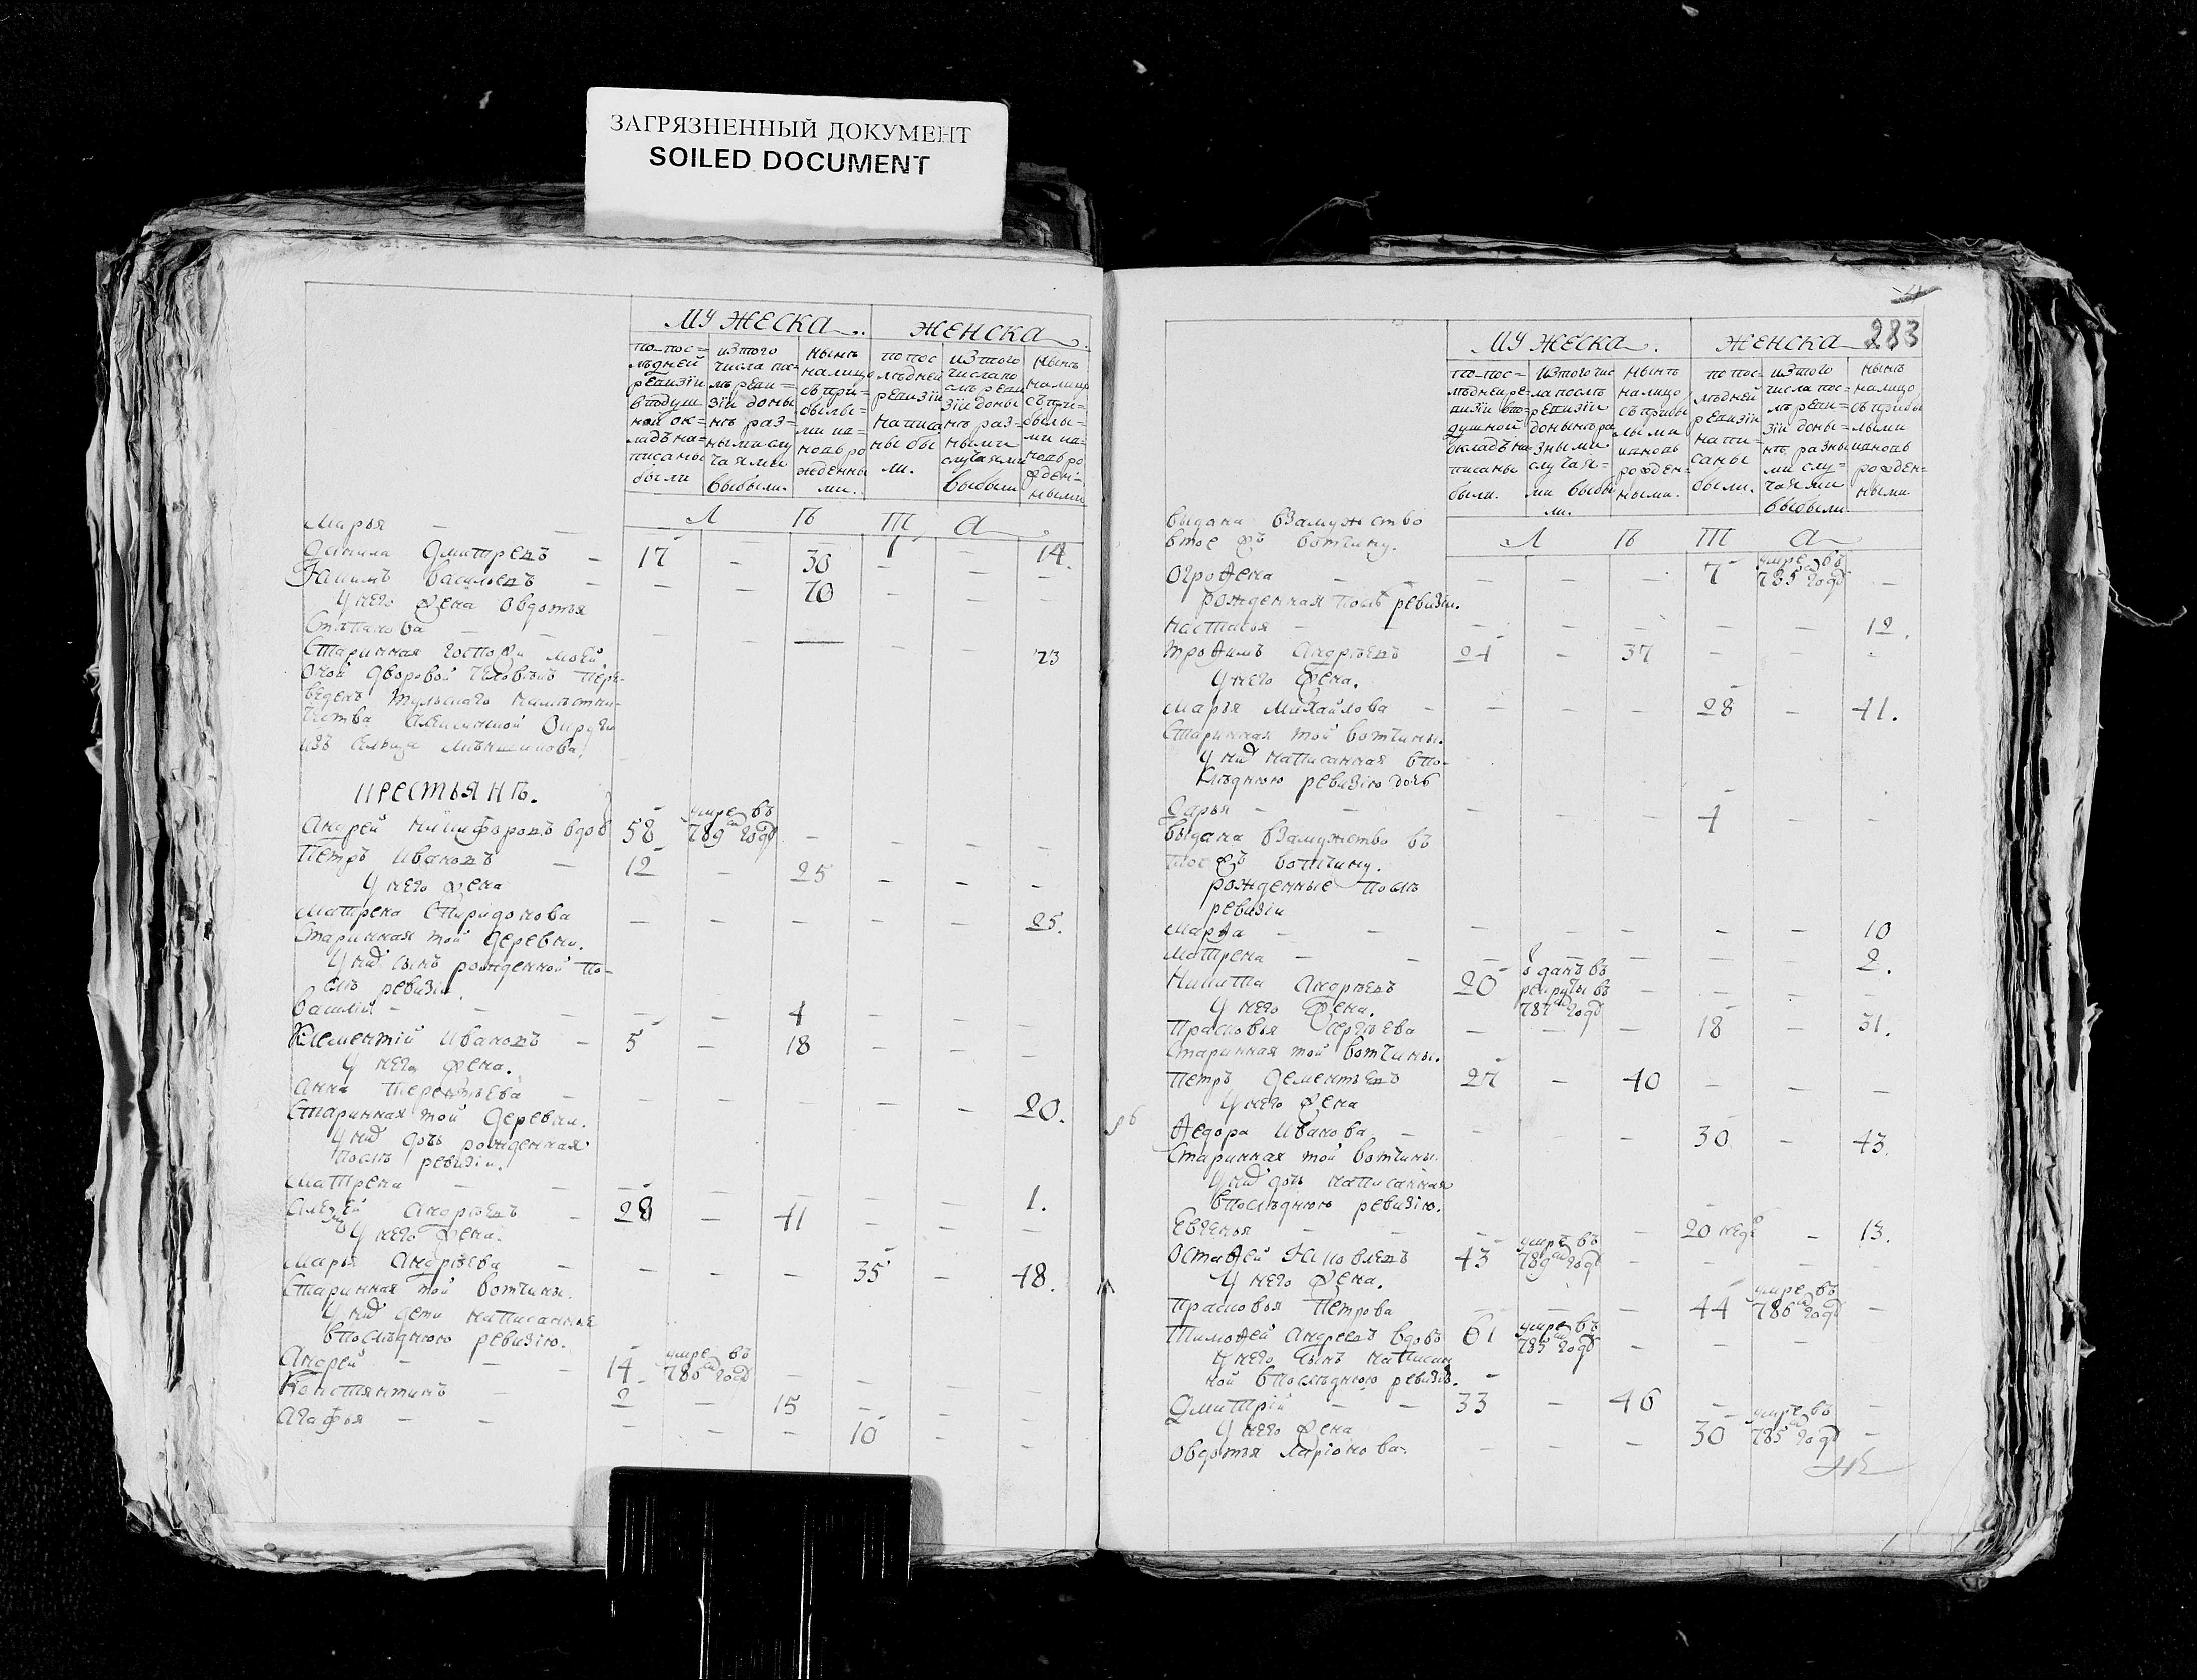 ЗАГРЯЗНЕННЫЙ ДОКУМЕНТ
SOILED DOCUMENT
МУЖЕСКА. ЖЕНСКА.
по пос=
лѣдней
ревизіи
в подуш
ной ок=
ладъ на=
писаны
были
изтого
числа по=
слѣ реви=
зіи до ны
нѣ раз=
ными слу
чаями
выбыли.
нынѣ
на лицо
съ при=
былы=
ми и в=
новь ро
жденны
ми.
по пос
лѣдней
ревизіи
написа
ны бы
ли.
изтого
числа по
слѣ реви
зіи до ны
нѣ раз=
ными
случаями
выбыли
нынѣ
на лицо
съ при=
былы=
ми и в=
новь ро
жден=
ными
Л Ѣ Т А
Марья — — 1 14.
Данила Дмитревъ — 17 — 30 — — —
Якимъ Васильевъ — — — 70 — — —
У него жена Овдотья
Степанова — — — — — — 73
Старинная Господи моей
дворовой человѣкъ пере-
веденъ Тульскаго намѣстни-
чества Алексинской Округи
изъ сельца
КРЕСТЬЯНѢ.
Андрей Никифоровъ вдовъ 58 умре въ 789м году — — — —
Петръ Ивановъ — 12 — 25 — — —
У него жена
Матрена Спиридонова — — — — — 25.
Старинная той деревни.
У нихъ сынъ рожденной по-
слѣ ревизіи.
Василій — — — — 4 — — —
Клементій Ивановъ — 5 — 18 — — —
У него жена.
Анна Терентьева — — — — — — 20.
Старинная той деревни.
У нихъ дочь рожденная
послѣ ревизіи.
Матрена — — — — — — 1.
Алексей Андрѣевъ — 28 — 41 — — —
У него жена.
Марья Андрѣева — — — — 35 — 48.
Старинная той вотчины.
У нихъ дети написанные
в последнюю ревизію.
Андрей — — 14 умре въ 786м году — — — —
Констянтинъ — 2 — 15 — — —
Агафья — — — — 10 — —
283
МУЖЕСКА. ЖЕНСКА
по пос=
лѣдней ре=
визіи впо=
душной
окладъ на=
писаны
были.
изтого чис
ла послѣ
ревизіи
до нынѣ ра
зными
случая=
ми выбы
ли.
нынѣ
на лицо
съ прибы
лыми
и вновь
рожден=
ными.
по пос=
лѣдней
ревизіи
напи=
саны
были.
изтого
числа пос=
лѣ реви=
зіи до ны=
нѣ разны
ми слу=
чаями
выбыли
нынѣ
на лицо
съ прибы
лыми
и вновь
рожден=
ными
Л Ѣ Т А
выдана в замужство
в тое жъ вотчину.
Огрофена — — — — 7 умре въ 785м году —
рожденная послѣ ревизіи.
Настасья — — — — — — 12.
Трофимъ Андрѣевъ 24 — 37 — — —
У него жена.
Марья Михайлова — — — — 28 — 41.
Старинная той вотчины.
У нихъ написанная в по-
слѣднюю ревизію дочь
Дарья — — — — — 4 — —
выдана в замужство въ
тое жъ вотчину.
рожденные послѣ
ревизіи
Марфа — — — — — — — 10
Матрена — — — — — — — 2.
Никита Андрѣевъ 20 отданъ въ рекруты въ 787м году — — — —
У него жена.
Прасковья Сергѣева — — — 18 — 31.
Старинная той вотчины.
Петръ Дементьевъ 27 — 40 — — —
У него жена
Федора Иванова — — — — 30 — 43.
Старинная той вотчины
У нихъ дочь написанная
в последнюю ревизію.
Евгенья — — — — 20 недѣ — 13.
Остафей Яковлевъ 43 умре въ 789м году — — — —
У него жена.
Прасковья Петрова — — — 44 умре въ 786м году —
Тимофей Андреевъ вдовъ 61 умре въ 785м году — — — —
У него сынъ написан
ной в последнюю ревизію.
Дмитрій — — 33 — 46 — — —
У него жена
Овдотья Ларіонова — — — 30 умре въ 785м году —